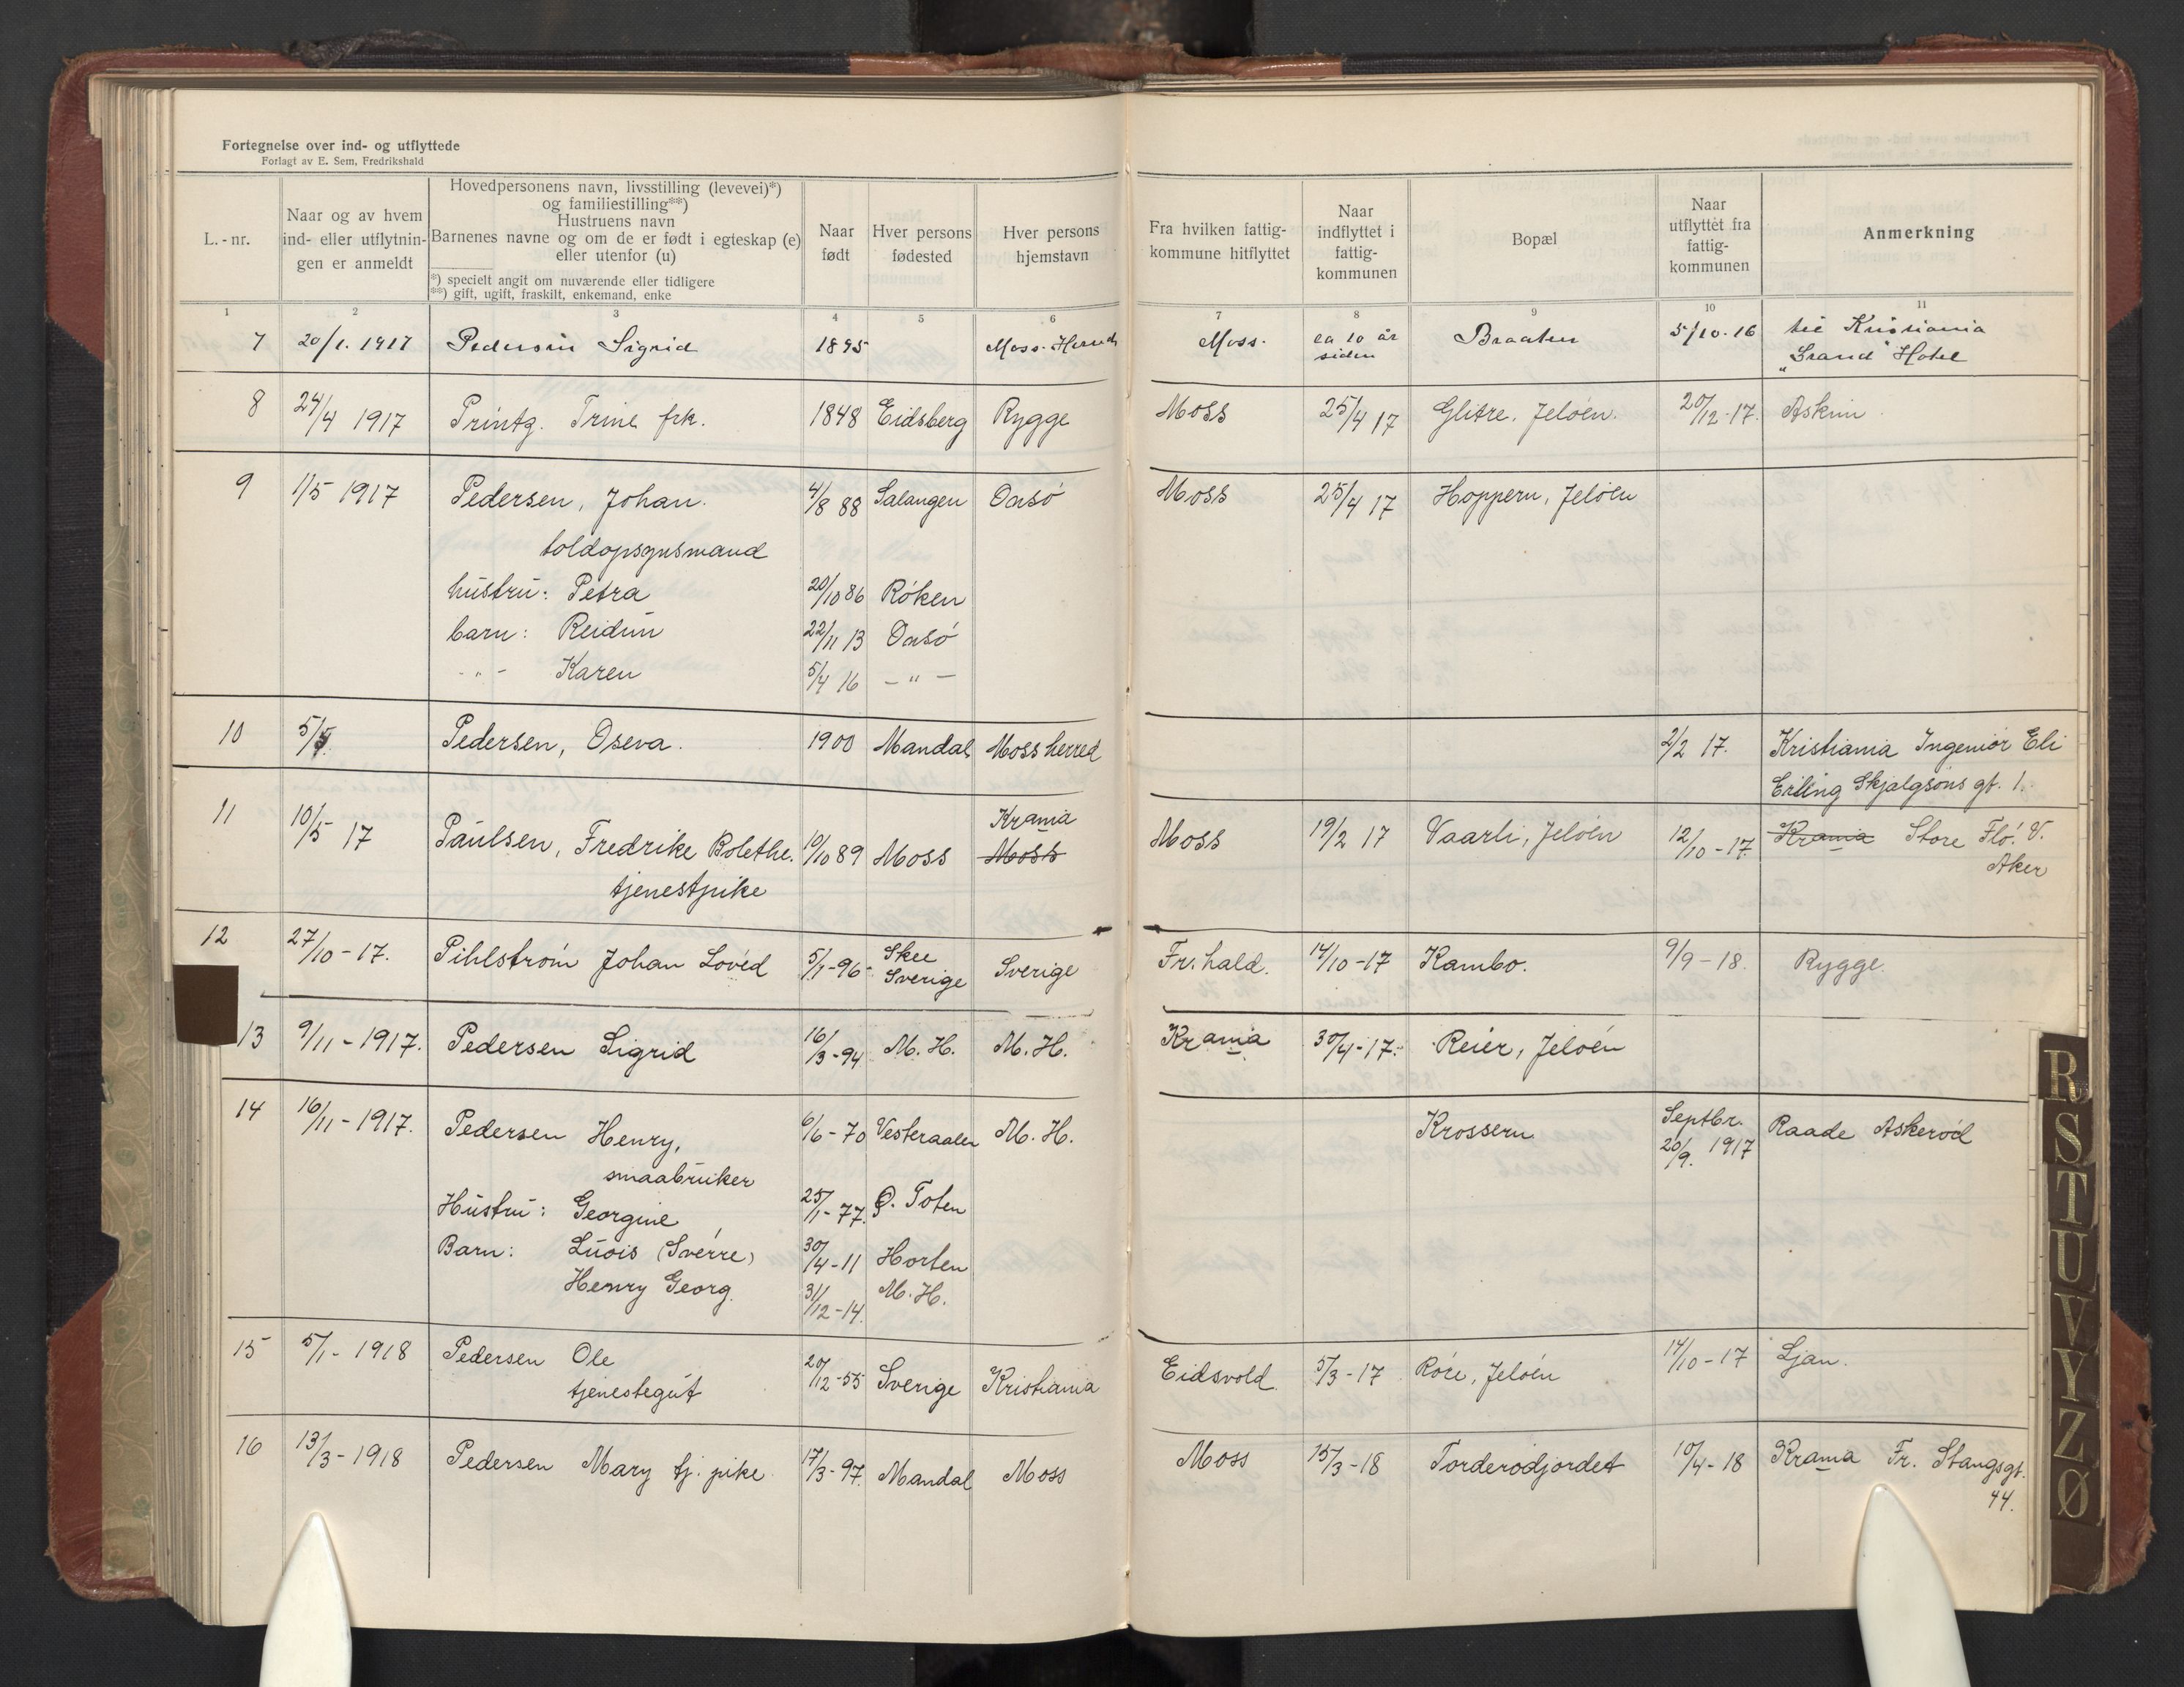 Fortegnelse over ind- og utflyttede
Forlagt av E. Sem, Fredrikshald
L.-nr.
Naar og av hvem
ind- eller utflytnin-
gen er anmeldt
Hovedpersonens navn, livsstilling (levevei)*)
og familiestilling**)
Hustruens navn
Barnenes navne og om de er født i egteskap (e)
eller utenfor (u)
*) specielt angit om nuværende eller tidligere
**) gift, ugift, fraskilt, enkemand, enke
Naar
født
Hver persons
fødested
Hver persons
hjemstavn
Fra hvilken fattig-
kommune hitflyttet
Naar
indflyttet i
fattig-
kommunen
Bopæl
Naar
utflyttet fra
fattig-
kommunen
Anmerkning
1 2 3 4 5 6 7 8 9 10 11
7 20/1. 1917 Pedersen Sigrid 1895 Moss-Herred Moss. ca 10 år Braaten 5/10-16 til Kristiania
siden „Grand" Hotel
8 24/4 1917 Printz. Trine frk. 1848 Eidsberg Rygge Moss 25/4 17 Glitre, Jeløen. 20/12-17. Askim
9 1/5 1917 Pedersen, Johan. 4/8 88 Salangen Onsö Moss 25/4 17 Hoppern, Jeløen
toldopsynsmand
hustru: Petra 20/10 86 Røken
barn: Reidun 22/11 13 Onsö
- " - Karen 5/4 16 - " -
10 5/5. Pedersen, Oseva. 1900 Mandal Moss herred 2/2 17. Kristiania Ingeniør Eli
Erling Skjalgsøns gt. 1.
Krania
11 10/5 17 Paulsen, Fredrike Bolethe. 10/10 89 Moss Moss Moss 19/2 17 Vaarli, Jeløen 12/10-17. Krania Store Flö. V.
Aker
tjenestpike
12 27/10-17. Pihlström Johan Lovèd 5/1-96 Skee Sverige Fr.hald. 14/10-17 Kambo. 9/9-18. Rygge.
Sverige
13 9/11-1917. Pedersen Sigrid 16/3-94 M. H. M. H. Krania 30/4-17. Reier, Jeløen
14 16/11-1917. Pedersen Henry, 6/6-70 Vesteraalen M. H. Krossern Septbr. Raade Askeröd
20/9. 1917
smaabruiker
Hustru: Georgine 25/1-77. Ø. Toten
Barn: Luois (Sverre) 30/4-11 Horten
Henry Georg. 31/12-14. M. H.
15 5/1-1918 Pedersen Ole 20/12-55 Sverige Kristiania Eidsvold. 5/3-17 Röre, Jeløen 14/10-17 Ljan.
tjenestegut
16 13/3-1918 Pedersen Mary tj. pike. 17/3-97. Mandal Moss Moss 15/3-18 Torderødjordet 10/4-18 Krania Fr. Stangsgt.
44.
R
S
T
U
V
Y
Z
Ø